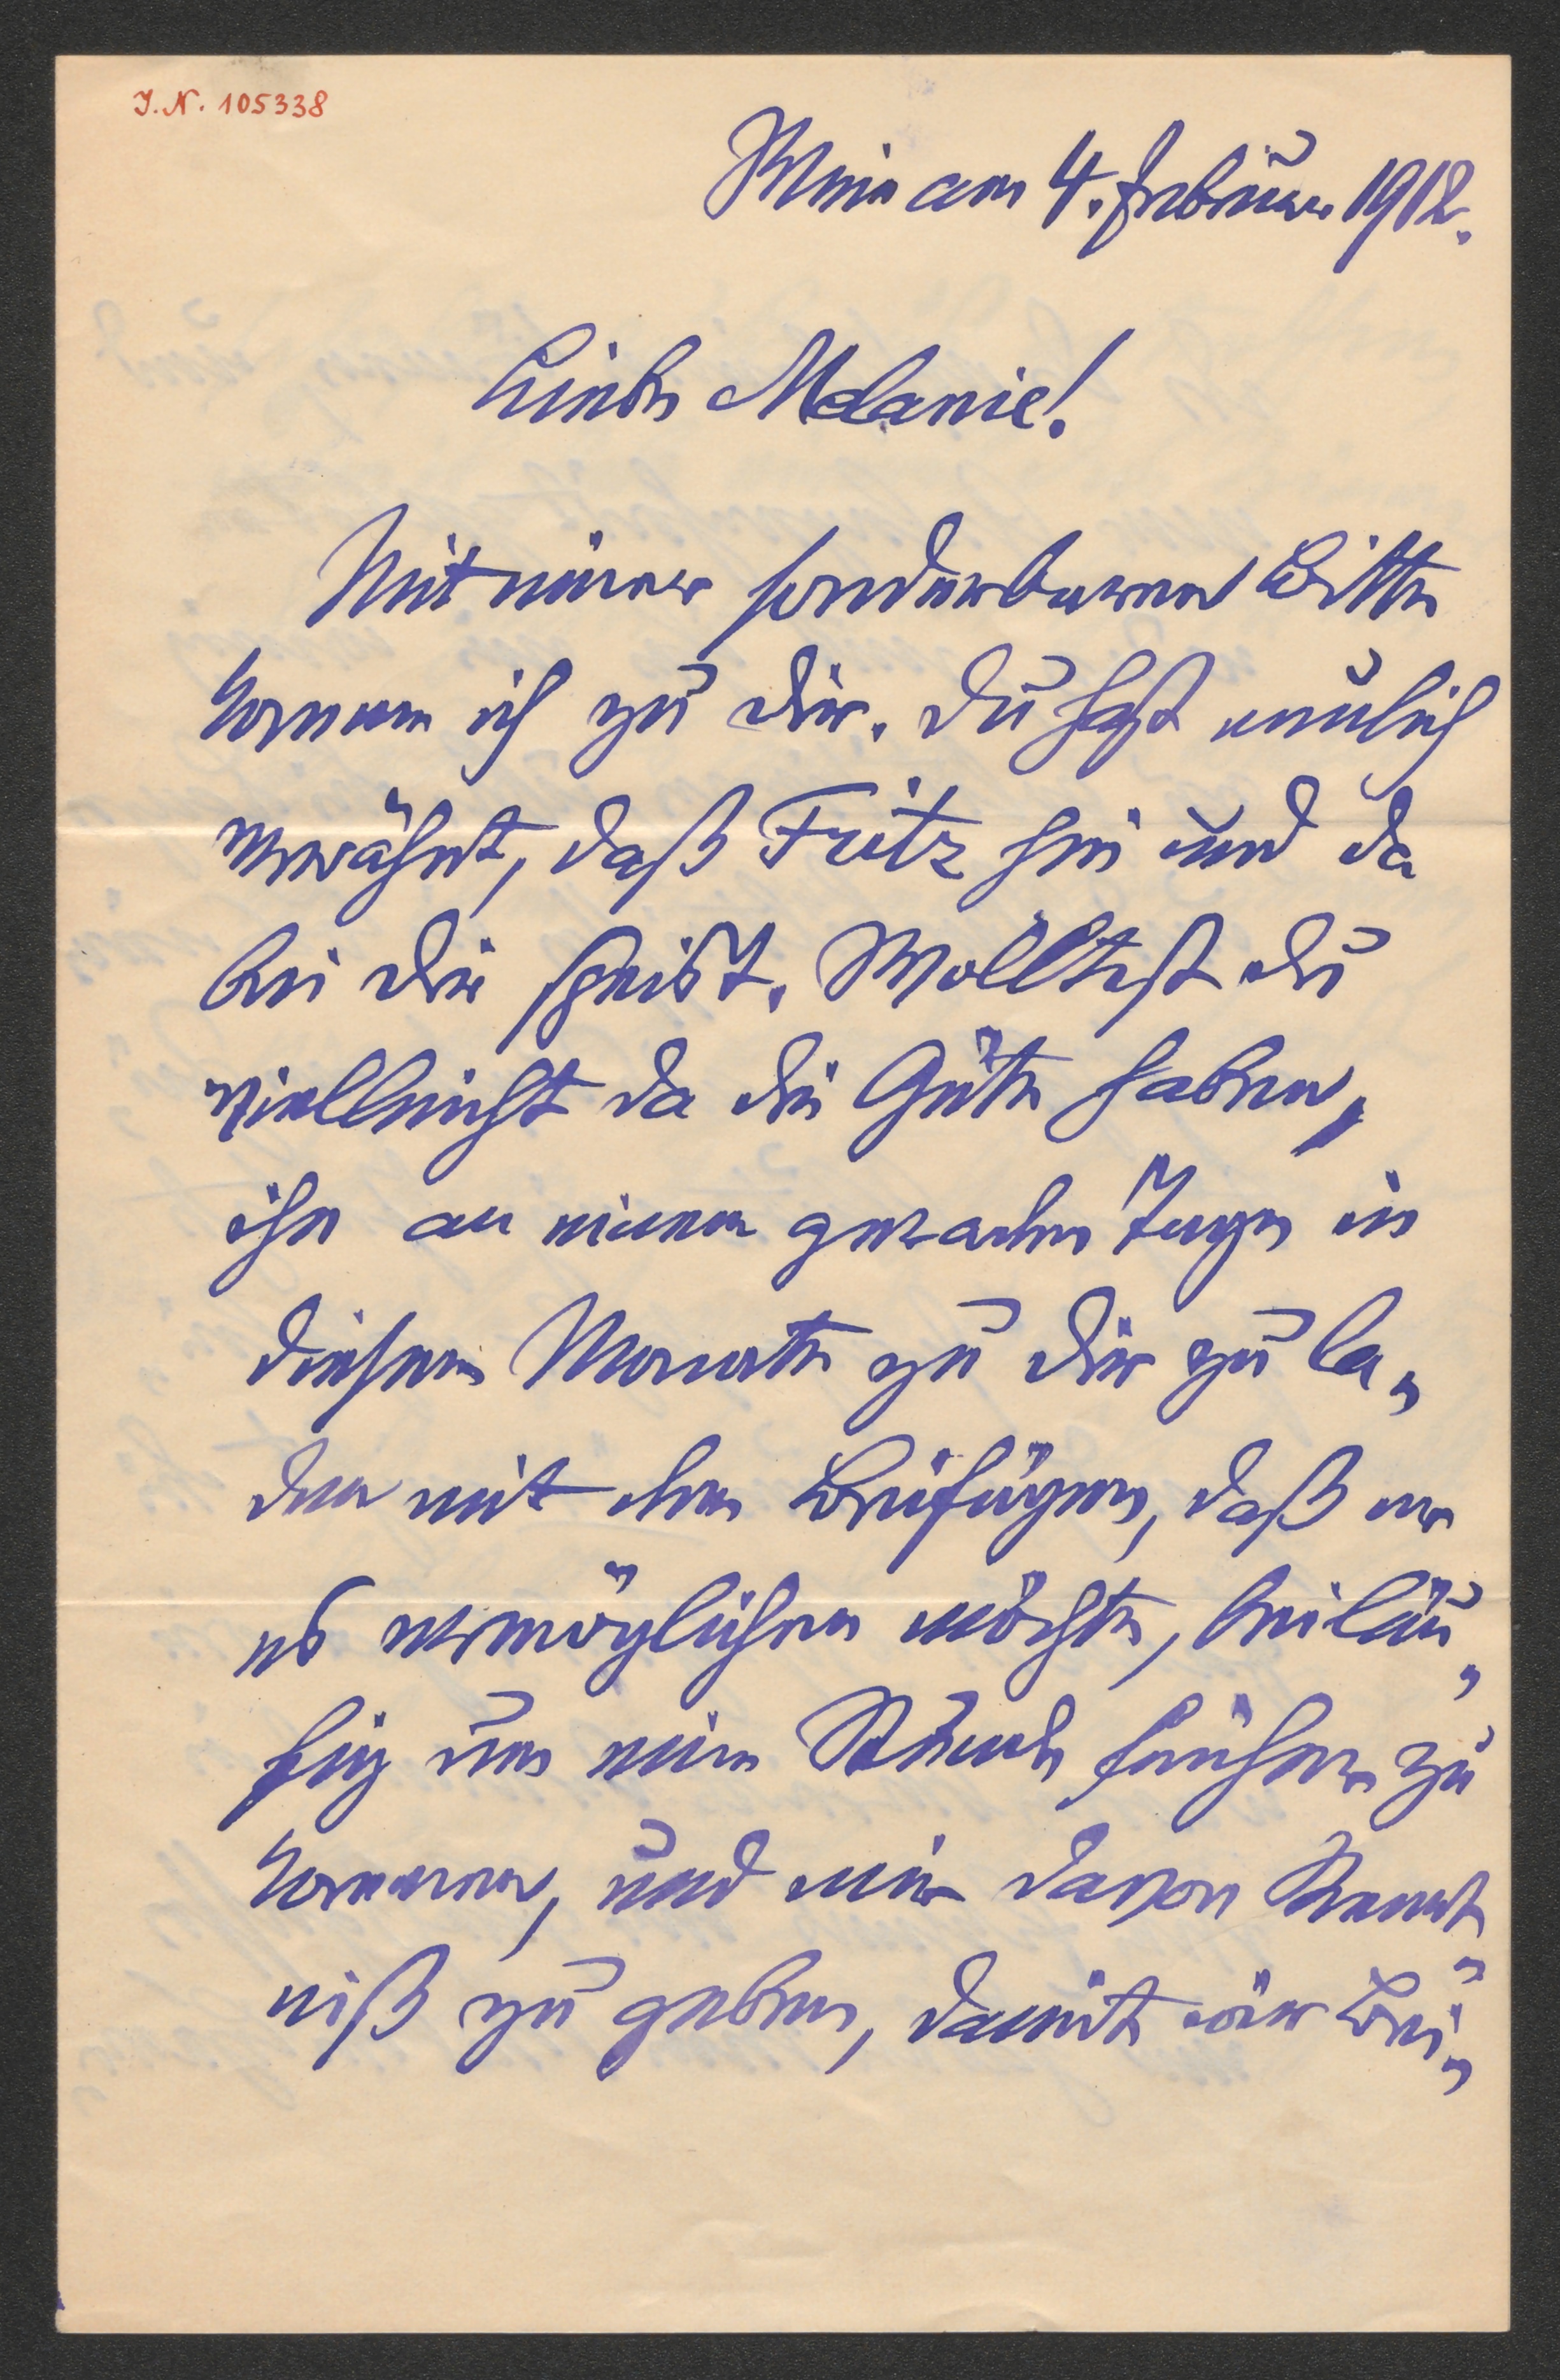 I.N. 105338
Wien am 4. Februar 1912.
Liebe Melanie!
Mit einer sonderbaren Bitte
komme ich zu dir. Du hast neulich
erwähnt, daß Fritz hie und da
bei dir speist. Wolltest du
vielleicht da die Güte haben,
ihn an einem geraden Tage in
diesem Monate zu dir zu la„
den mit dem Beifügen, daß er
es ermöglichen möchte, beiläu„
fig um eine Stunde früher zu
kommen, und mir davon Kennt„
niß zu geben, damit wir Bei„